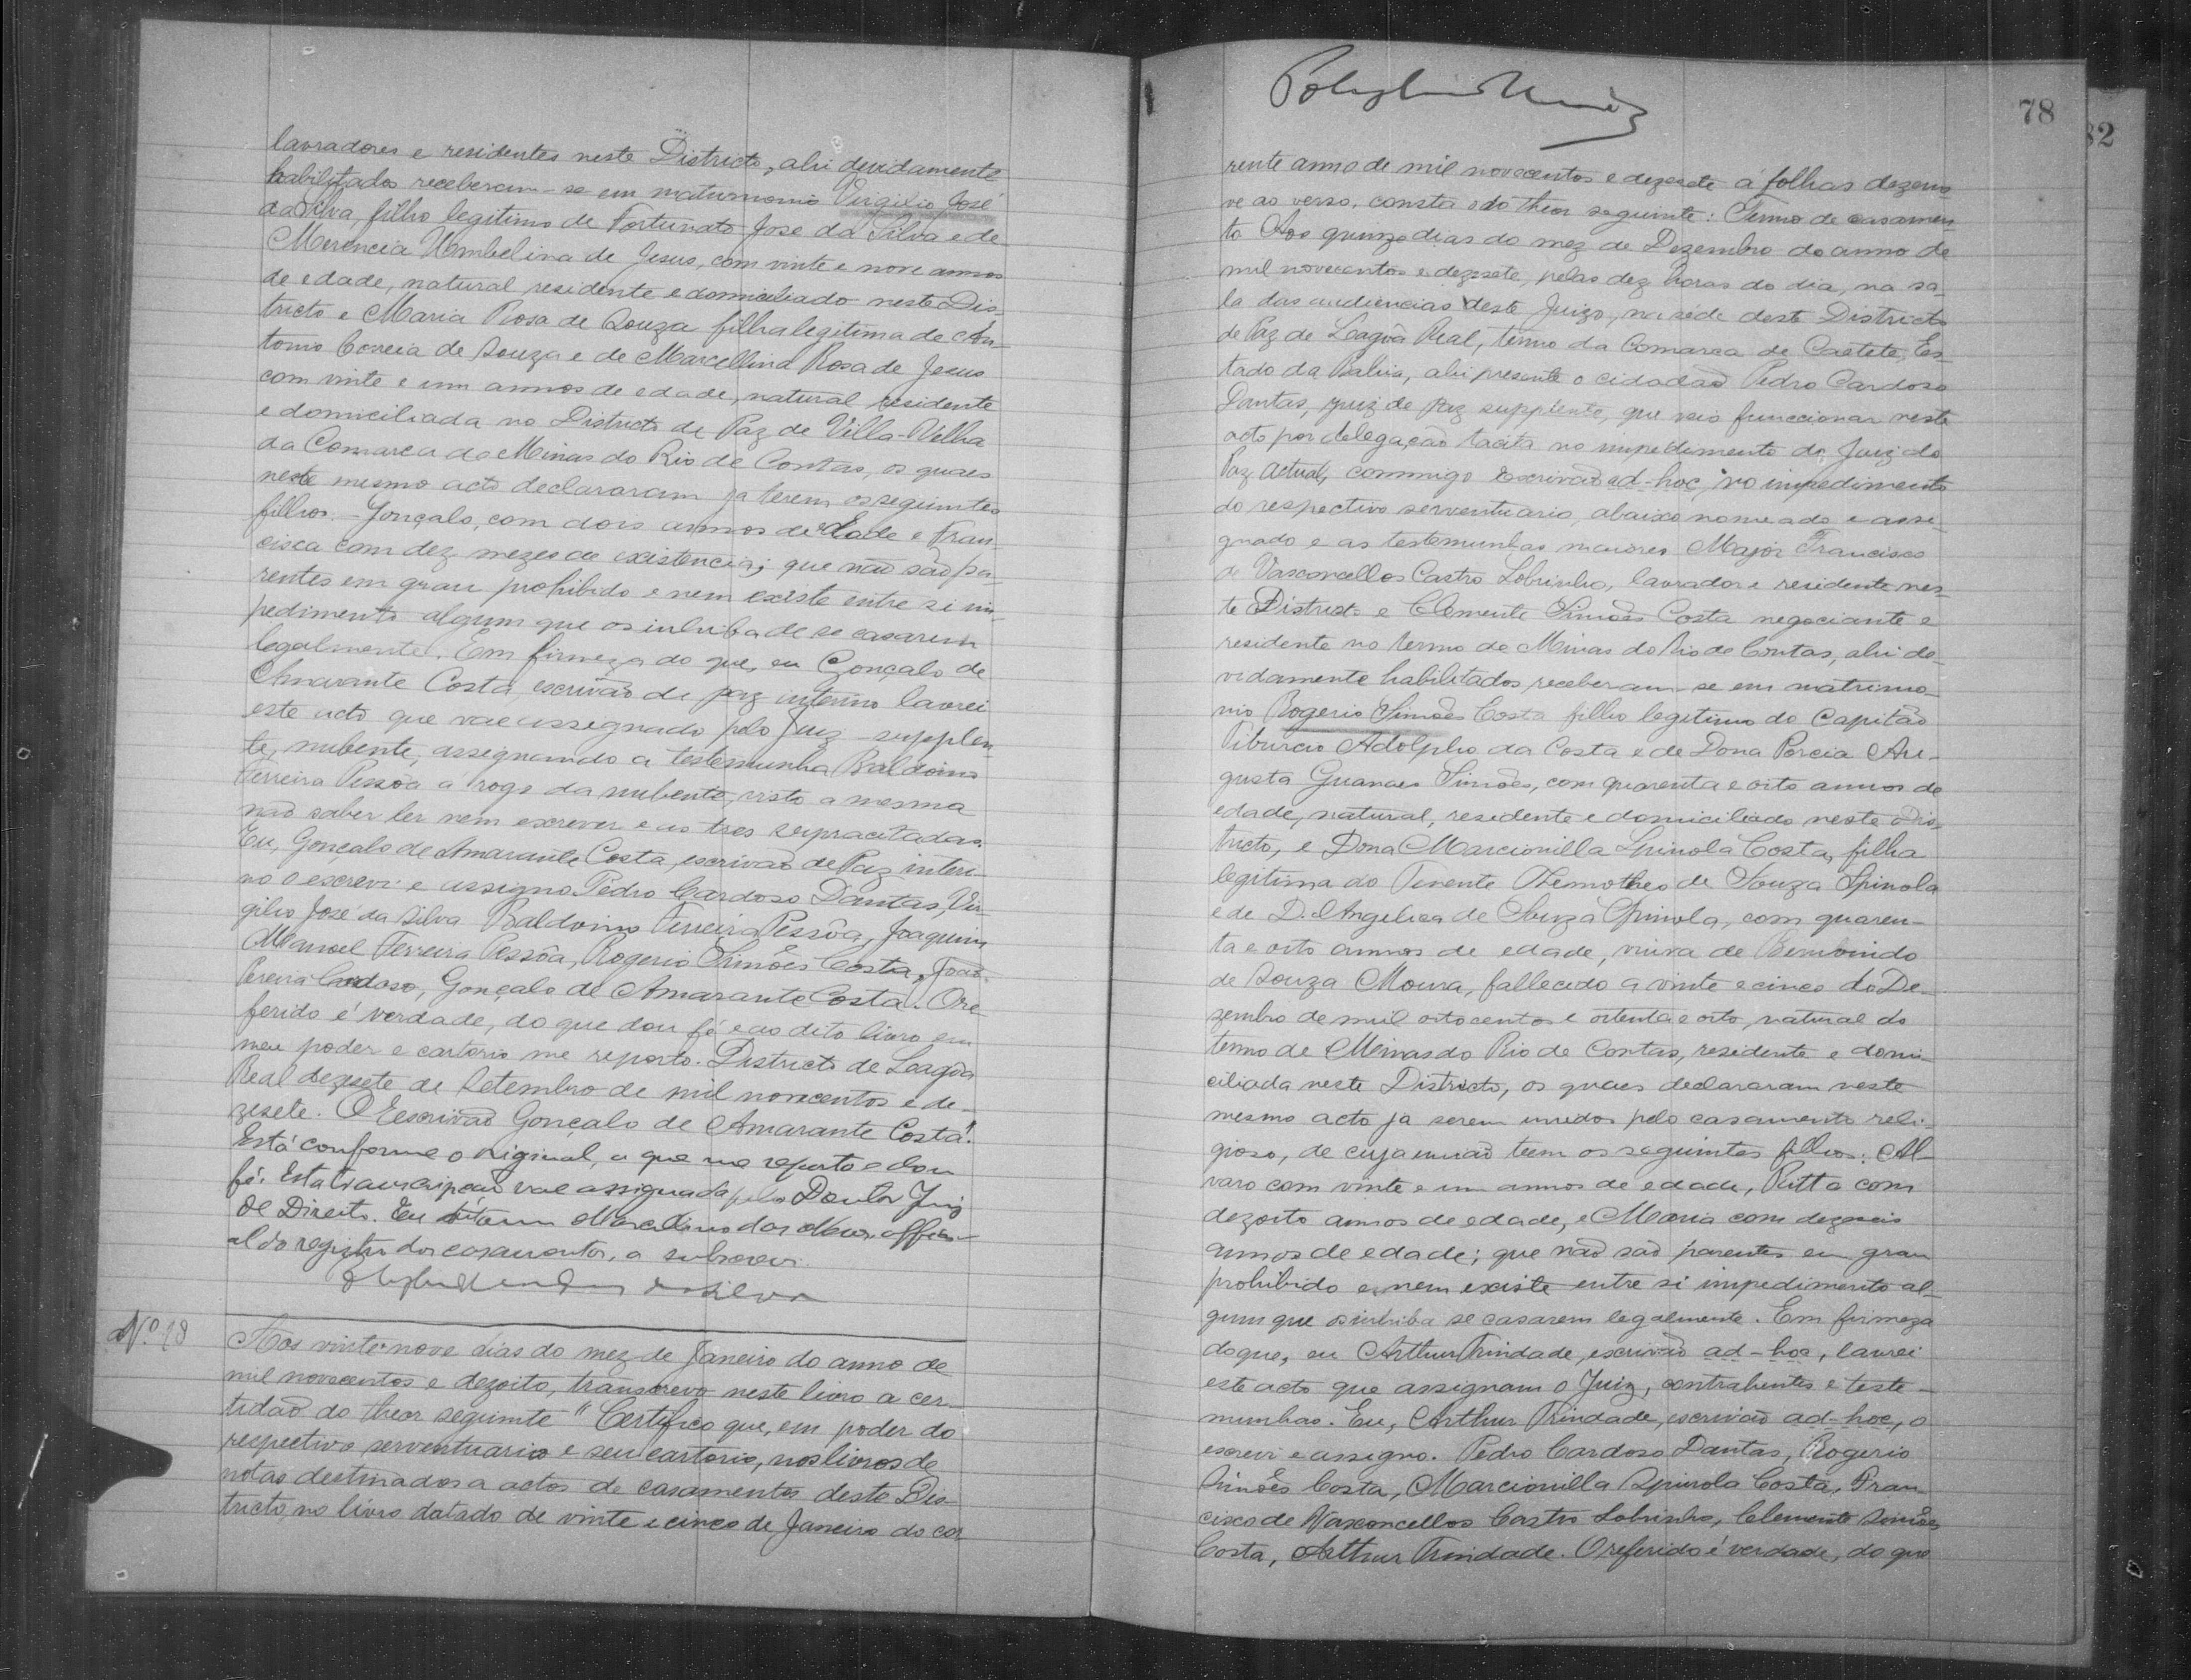 lavradores e residentes neste Districto, ahi devidamente
habilitados receberam-se em matrimonio Virgilio José
da Silva, filho legitimo de Fortunato José da Silva e de
Merencia Umbelina de Jesus, com vinte e nove annos
de edade, natural residente e domiciliado neste Dis-
tricto e Maria Rosa de Souza filha legitima de An-
tonio Correia de Souza e de Marcellina Rosa de Jesus
com vinte e um annos de edade, natural residente
e domiciliada no Districto de Paz de Villa-Velha
da Comarca de Minas do Rio de Contas, os quaes
neste mesmo acto declararam ja terem os seguintes
filhos. - Gonçalo, com dois annos de edade e Fran-
cisca com dez mezes de existencia; que não são pa-
rentes em grau prohibido e nem existe entre si im-
pedimento algum que os inhiba de se casarem
legalmente. Em firmeza do que, eu Gonçalo de
Amarante Costa, escrivão de paz interino lavrei
este acto que vae assignado pelo Juiz - supplen-
te, nubente, assignando a testemunha Baldoino
Ferreira Pessôa a rogo da nubente, visto a mesma
não saber ler nem escrever e as tres supracitadas.
Eu, Gonçalo de Amarante Costa, escrivão de Paz interi-
no o escrevi e assigno. Pedro Cardoso Dantas, Vir-
gilio José da Silva Baldoino Ferreira Pessôa, Joaquim
Manoel Ferreira Pessôa, Rogerio Simões Costa, João
Pereira Cardoso, Gonçalo de Amarante Costa. O re-
ferido é verdade, do que dou fé e ao dito livro em
meu poder e cartorio me reporto. Districto de Lagôa
Real dezesete de Setembro de mil novecentos e de-
zesete. O Escrivão Gonçalo de Amarante Costa".
Está conforme o original, a que me reporto e dou
fé. Esta transcripção vae assignada pelo Doutor Juiz
de Direito. Eu Marcelino das Neves, offici-
al do registro dos casamentos, a subscrevi.
da Silva
Nº 18
Aos vinte nove dias do mez de Janeiro do anno de
mil novecentos e dezoito, transcrevo neste livro a cer-
tidão do theor seguinte "Certifico que, em poder do
respectivo serventuario e seu cartorio, nos livros de
notas destinados a actos de casamentos deste Dis-
tricto, no livro datado de vinte e cinco de Janeiro do cor
78
82
rente anno de mil novecentos e dezesete á folhas dezeno
ve ao verso, consta o do theor seguinte: Termo de casamen
to Aos quinze dias do mez de Dezembro do anno de
mil novecentos e dezesete, pelas dez horas do dia, na sa-
la das audiencias deste Juizo, na séde deste Districto
de Paz de Lagôa Real, termo da Comarca de Caetete, Es
tado da Bahia, ahi presente o cidadão Pedro Cardoso
Dantas, juiz de paz supplente, que veio funccionar neste
acto por delegação tacita no impedimento do Juiz de
Paz actual, commigo escrivão ad-hoc, no impedimento
do respectivo serventuario, abaixo nomeado e assi-
gnado e as testemunhas maiores Major Francisco
de Vasconcellos Castro Sobrinho, lavrador e residente nes-
te Districto e Clemente Simões Costa negociante e
residente no termo de Minas do Rio de Contas, ahi de-
vidamente habilitados receberam-se em matrimo-
nio Rogerio Simões Costa filho legitimo do Capitão
Tiburcio Adolpho da Costa e de Dona Porcia Au-
gusta Guanaes Simões, com quarenta e oito annos de
edade, natural, residente e domiciliado neste Dis-
tricto, e Dona Marcionilla Spinola Costa, filha
legitima do Tenente Themotheo de Souza Spinola
e de D. Angelica de Souza Spinola, com quaren-
ta e oito annos de edade, viuva de Bemvindo
de Souza Moura, fallecido a vinte e cinco de De-
zembro de mil oitocentos e oitenta e oito, natural do
termo de Minas do Rio de Contas, residente e domi
ciliada neste Districto, os quaes declararam neste
mesmo acto ja serem unidos pelo casamento reli-
gioso, de cuja união teem os seguintes filhos: Al-
varo com vinte e um annos de edade, Rutta com
dezoito annos de edade, e Maria com dezeseis
annos de edade; que não são parentes em grau
prohibido e nem existe entre si impedimento al-
gum que os inhiba se casarem legalmente. Em firmeza
do que, eu Arthur Trindade, escrivão ad-hoc, lavrei
este acto que assignam o Juiz, contrahentes e teste-
munhas. Eu, Arthur Trindade, escrivão ad-hoc, o
escrevi e assigno. Pedro Cardoso Dantas, Rogerio
Simões Costa, Marcionilla Spinola Costa, Fran-
cisco de Vasconcellos Castro Sobrinho, Clemente Simões
Costa, Arthur Trindade. O referido é verdade, do que